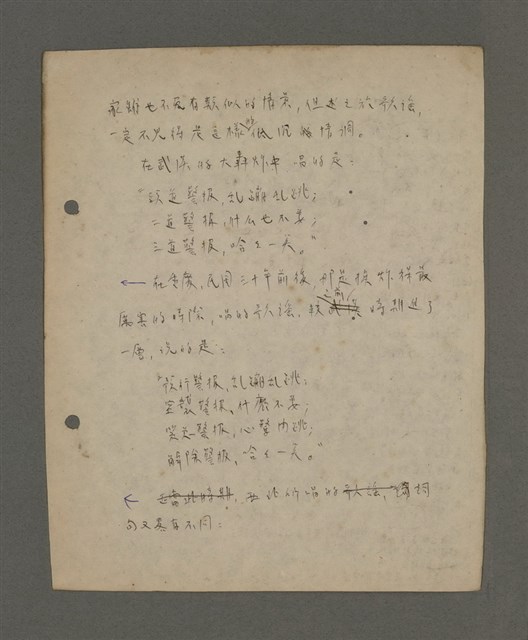 家鄉也不免有類似的情景，但是之於歌謠，
一定不只停在這樣低沉的情調。
在武漢的大轟炸中唱的是：
"預行警報，乱蹦乱跳；
二道警報，什么也不要；
三道警報，哈哈一天。"
在重慶，民国三十年前後，那是挨炸得最
厲害的時際，唱的歌謠，較之前 時期進了
一層，說的是：
"預行警報，乱蹦乱跳；
空襲警報，什麼不要；
緊急警報，心驚肉跳；
解除警報，哈哈一天。"
此所唱的 詞
句又是有不同：